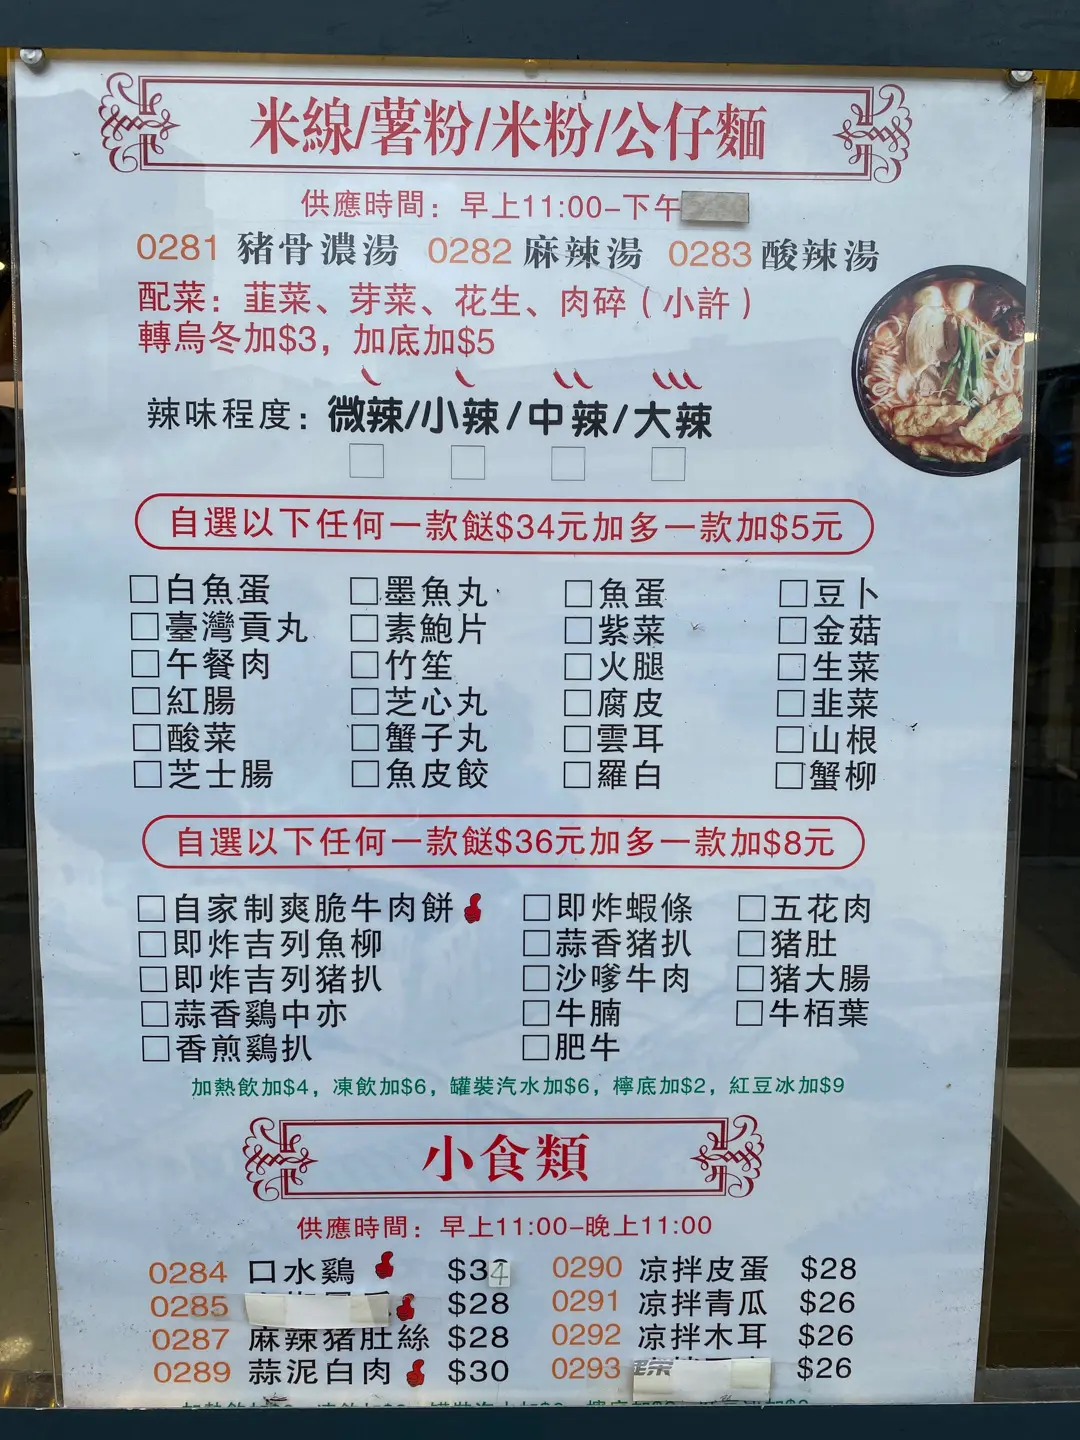 米線/薯粉/米粉/公仔麵
供應時間：早上11:00-下午
0281 豬骨濃湯 0282 麻辣湯 0283 酸辣湯
配菜：韮菜、芽菜、花生、肉碎（小許）
轉烏冬加$3，加底加$5
辣味程度：微辣/小辣/中辣/大辣
自選以下任何一款餸$34元加多一款加$5元
□白魚蛋 □墨魚丸 □魚蛋 □豆卜
□臺灣貢丸 □素鮑片 □紫菜 □金菇
□午餐肉 □竹笙 □火腿 □生菜
□紅腸 □芝心丸 □腐皮 □韭菜
□酸菜 □蟹子丸 □雲耳 □山根
□芝士腸 □魚皮餃 □羅白 □蟹柳
自選以下任何一款餸$36元加多一款加$8元
□自家制爽脆牛肉餅 □即炸蝦條 □五花肉
□即炸吉列魚柳 □蒜香猪扒 □猪肚
□即炸吉列猪扒 □沙嗲牛肉 □猪大腸
□蒜香鷄中亦 □牛腩 □牛栢葉
□香煎鷄扒 □肥牛
加熱飲加$4，凍飲加$6，罐裝汽水加$6，檸底加$2，紅豆冰加$9
小食類
供應時間：早上11:00-晚上11:00
0284 口水鷄 $34 0290 凉拌皮蛋 $28
0285 $28 0291 凉拌青瓜 $26
0287 麻辣猪肚絲 $28 0292 凉拌木耳 $26
0289 蒜泥白肉 $30 0293 $26